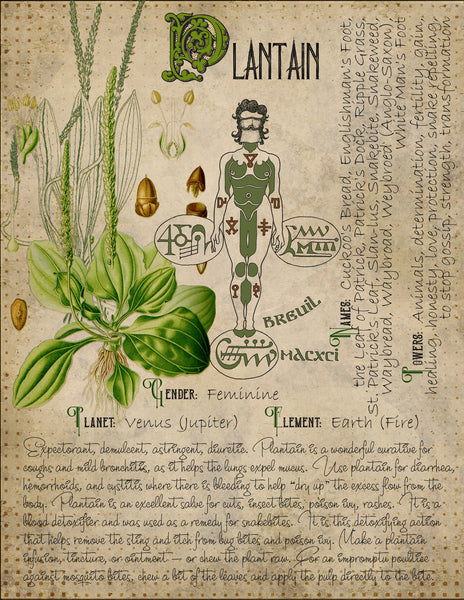 PLANTAIN
NAMES: Cuckoo's Bread, Englishman's Foot,
the Leaf of Patrick, Patrick's Dock, Ripple Grass,
St. Patrick's Leaf, Slan-lus, Snakebite, Snakeweed,
Waybread, Waybroad, Weybroed (Anglo-Saxon),
White Man's Foot
POWERS: Animals, determination, fertility, gain,
healing, honesty, love, protection, snake repelling,
to stop gossip, strength, transformation
BREUIL
HACXCI
GENDER: Feminine
PLANET: Venus (Jupiter)
ELEMENT: Earth (Fire)
Expectorant, demulcent, astringent, diuretic. Plantain is a wonderful curative for
coughs and mild bronchitis, as it helps the lungs expel mucus. Use plantain for diarrhea,
hemorrhoids, and cystitis where there is bleeding to help "dry up" the excess flow from the
body. Plantain is an excellent salve for cuts, insect bites, poison ivy, rashes. It is a
blood detoxifier and was used as a remedy for snakebites. It is this detoxifying action
that helps remove the sting and itch from bug bites and poison ivy. Make a plantain
infusion, tincture, or ointment — or chew the plant raw. For an impromptu poultice
against mosquito bites, chew a bit of the leaves and apply the pulp directly to the bite.